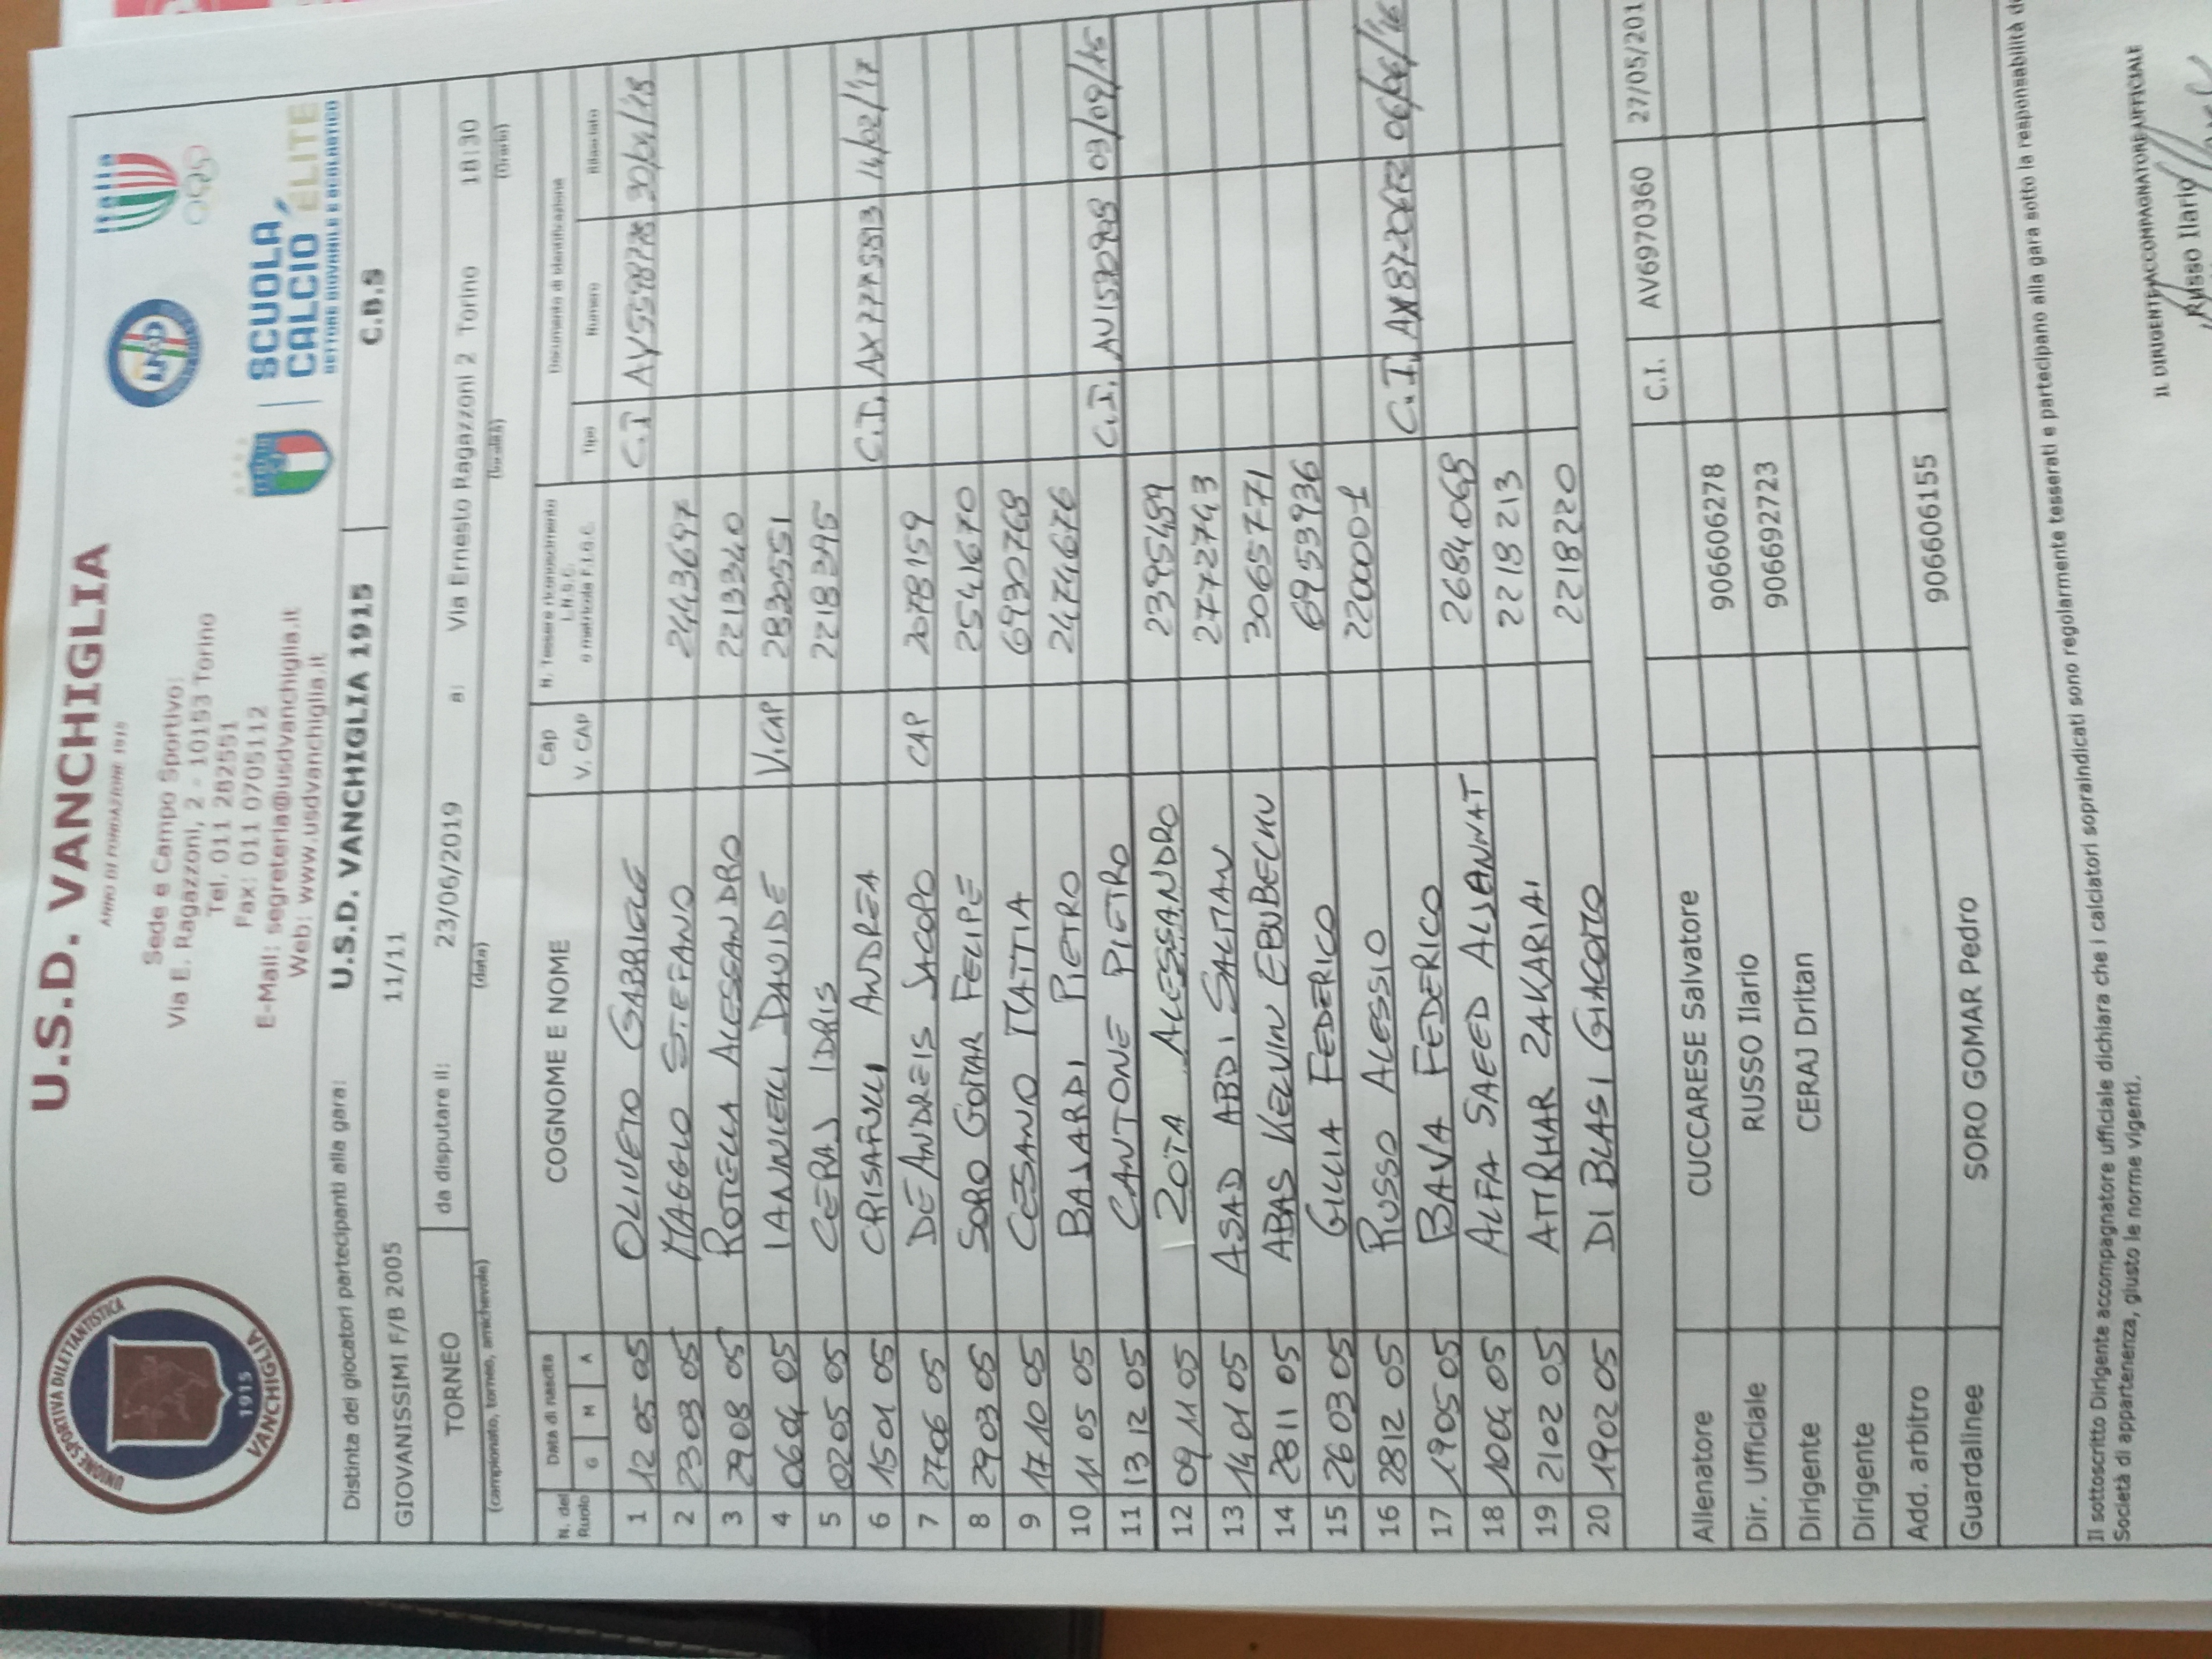 U.S.D. VANCHIGLIA
ANNO DI FONDAZIONE 1915
Sede e Campo Sportivo:
Via E. Ragazzoni, 2 - 10153 Torino
Tel. 011 282551
Fax: 011 0705112
E-Mail: segreteria@usdvanchiglia.it
Web: www.usdvanchiglia.it
UNIONE SPORTIVA DILETTANTISTICA
1915
VANCHIGLIA
italia
SCUOLA
CALCIO ÉLITE
SETTORE GIOVANILE E SCOLASTICO
Distinta dei giocatori partecipanti alla gara: U.S.D. VANCHIGLIA 1915 C.B.S
GIOVANISSIMI F/B 2005 11/11
TORNEO da disputare il: 23/06/2019 a: Via Ernesto Ragazzoni 2 Torino 18:30
(campionato, torneo, amichevole) (data) (località) (Orario)
N. del Ruolo Data di nascita G M A COGNOME E NOME Cap V. CAP N. Tessera riconoscimento L.N.S.C. o matricola F.I.G.C. Documento di identificazione Tipo Numero Rilasciato
1 12 05 05 OLIVETO GABRIELE C.I
2 23 03 05 MAGGIO STEFANO 2443697
3 29 08 05 ROTELLA ALESSANDRO 2213340
4 06 04 05 IANNIELLI DAVIDE V.CAP 2830551
5 02 05 05 CERAJ IDRIS 2218395
6 15 01 05 CRISAFULLI ANDREA C.I. AX7775813 14/02/17
7 27 06 05 DE ANDREIS JACOPO CAP 2078159
8 29 03 05 SORO GOMAR FELIPE 2541670
9 17 10 05 CESANO MATTIA 6930768
10 11 05 05 BAJARDI PIETRO 2474676
11 13 12 05 CANTONE PIETRO C.I. 03/09/15
12 09 11 05 ZOITA ALESSANDRO 2395489
13 14 01 05 ASAD ABDI SALITAN 2772743
14 28 11 05 ABAS KELVIN EBUBECHU 3065771
15 26 03 05 GILLIA FEDERICO 6953936
16 28 12 05 RUSSO ALESSIO 2200001
17 19 05 05 BAVA FEDERICO C.I.
18 10 04 05 ALFA SAEED ALJENNAT 2684068
19 21 02 05 ATTRHAR ZAKARIA 2218213
20 19 02 05 DI BLASI GIACOMO 2218220
C.I. AV6970360 27/05/201
Allenatore CUCCARESE Salvatore 906606278
Dir. Ufficiale RUSSO Ilario 906692723
Dirigente CERAJ Dritan
Dirigente
Add. arbitro
Guardalinee SORO GOMAR Pedro 906606155
Il sottoscritto Dirigente accompagnatore ufficiale dichiara che i calciatori sopraindicati sono regolarmente tesserati e partecipano alla gara sotto la responsabilità de
Società di appartenenza, giusto le norme vigenti.
IL DIRIGENTE ACCOMPAGNATORE UFFICIALE
Russo Ilario